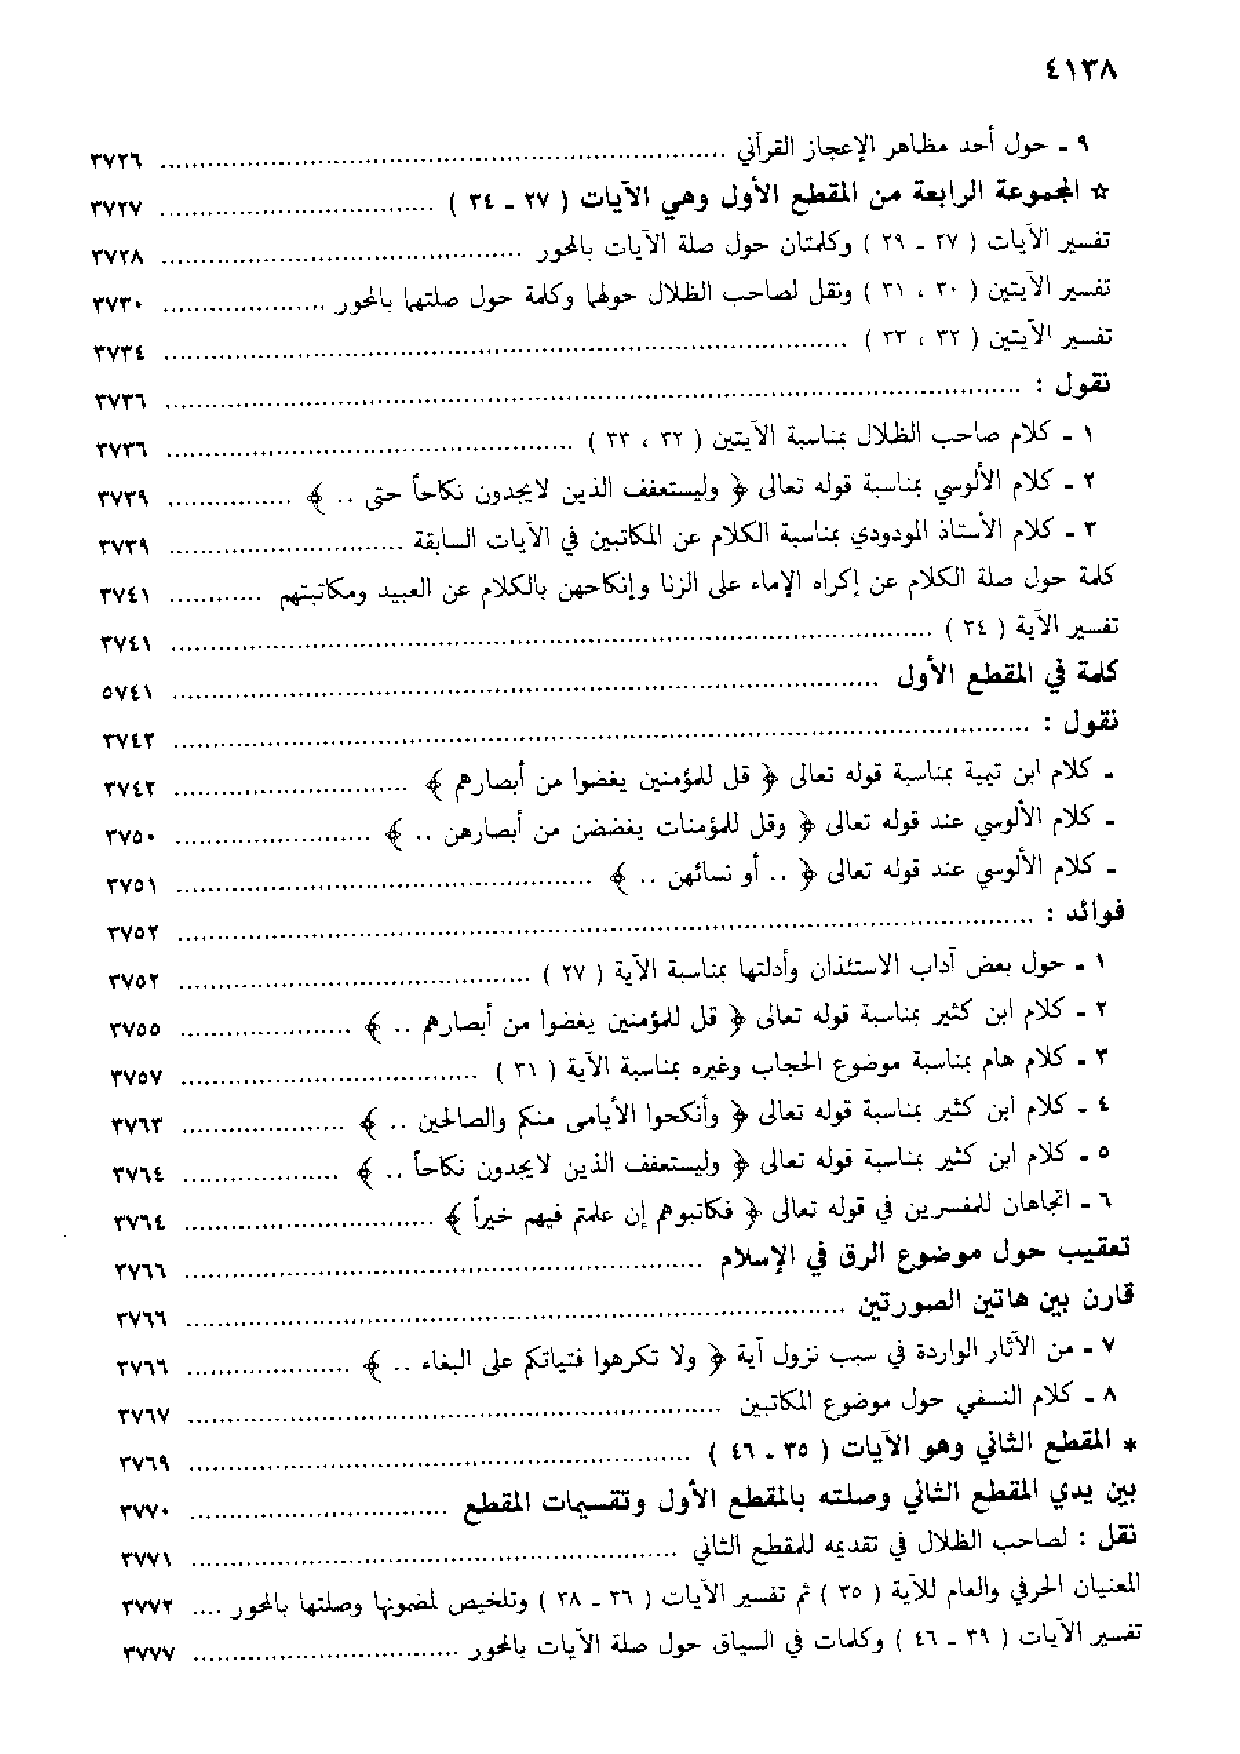 ٤١٣٨
٩ - حول أحد مظاهر الإعجاز القرآني ........ ٣٧٢٦
☆ المجموعة الرابعة من المقطع الأول وهي الآيات ( ٢٧ - ٣٤ ) ........ ٣٧٢٧
تفسير الآيات ( ٢٧ - ٢٩ ) وكلمتان حول صلة الآيات بالمحور ........ ٣٧٢٨
تفسير الآيتين ( ٣٠ ، ٣١ ) ونقل لصاحب الظلال حولها وكلمة حول صلتهما بالمحور ........ ٣٧٣٠
تفسير الآيتين ( ٣٢ ، ٣٣ ) ........ ٣٧٣٤
نقول : ........ ٣٧٣٦
١ - كلام صاحب الظلال بمناسبة الآيتين ( ٣٢ ، ٣٣ ) ........ ٣٧٣٦
٢ - كلام الألوسي بمناسبة قوله تعالى ﴿ وليستعفف الذين لايجدون نكاحاً حتى .. ﴾ ........ ٣٧٣٩
٣ - كلام الأستاذ المودودي بمناسبة الكلام عن المكاتبين في الآيات السابقة ........ ٣٧٣٩
كلمة حول صلة الكلام عن إكراه الإماء على الزنا وإنكاحهن بالكلام عن العبيد ومكاتبتهم ........ ٣٧٤١
تفسير الآية ( ٣٤ ) ........ ٣٧٤١
كلمة في المقطع الأول ........ ٥٧٤١
نقول : ........ ٣٧٤٢
- كلام ابن تيمية بمناسبة قوله تعالى ﴿ قل للمؤمنين يغضوا من أبصارهم ﴾ ........ ٣٧٤٢
- كلام الألوسي عند قوله تعالى ﴿ وقل للمؤمنات يغضضن من أبصارهن .. ﴾ ........ ٣٧٥٠
- كلام الألوسي عند قوله تعالى ﴿ .. أو نسائهن .. ﴾ ........ ٣٧٥١
فوائد : ........ ٣٧٥٢
١ - حول بعض آداب الاستئذان وأدلتها بمناسبة الآية ( ٢٧ ) ........ ٣٧٥٢
٢ - كلام ابن كثير بمناسبة قوله تعالى ﴿ قل للمؤمنين يغضوا من أبصارهم .. ﴾ ........ ٣٧٥٥
٣ - كلام هام بمناسبة موضوع الحجاب وغيره بمناسبة الآية ( ٣١ ) ........ ٣٧٥٧
٤ - كلام ابن كثير بمناسبة قوله تعالى ﴿ وأنكحوا الأيامى منكم والصالحين .. ﴾ ........ ٣٧٦٣
٥ - كلام ابن كثير بمناسبة قوله تعالى ﴿ وليستعفف الذين لايجدون نكاحاً .. ﴾ ........ ٣٧٦٤
٦ - اتجاهان للمفسرين في قوله تعالى ﴿ فكاتبوهم إن علمتم فيهم خيراً ﴾ ........ ٣٧٦٤
تعقيب حول موضوع الرق في الإسلام ........ ٣٧٦٦
قارن بين هاتين الصورتين ........ ٣٧٦٦
٧ - من الآثار الواردة في سبب نزول آية ﴿ ولا تكرهوا فتياتكم على البغاء .. ﴾ ........ ٣٧٦٦
٨ - كلام النسفي حول موضوع المكاتبين ........ ٣٧٦٧
* المقطع الثاني وهو الآيات ( ٣٥ - ٤٦ ) ........ ٣٧٦٩
بين يدي المقطع الثاني وصلته بالمقطع الأول وتقسيمات المقطع ........ ٣٧٧٠
نقل : لصاحب الظلال في تقديمه للمقطع الثاني ........ ٣٧٧١
المعنيان الحرفي والعام للآية ( ٣٥ ) ثم تفسير الآيات ( ٣٦ - ٣٨ ) وتلخيص لمضمونها وصلتها بالمحور .... ٣٧٧٢
تفسير الآيات ( ٣٩ - ٤٦ ) وكلمات في السياق حول صلة الآيات بالمحور ........ ٣٧٧٧